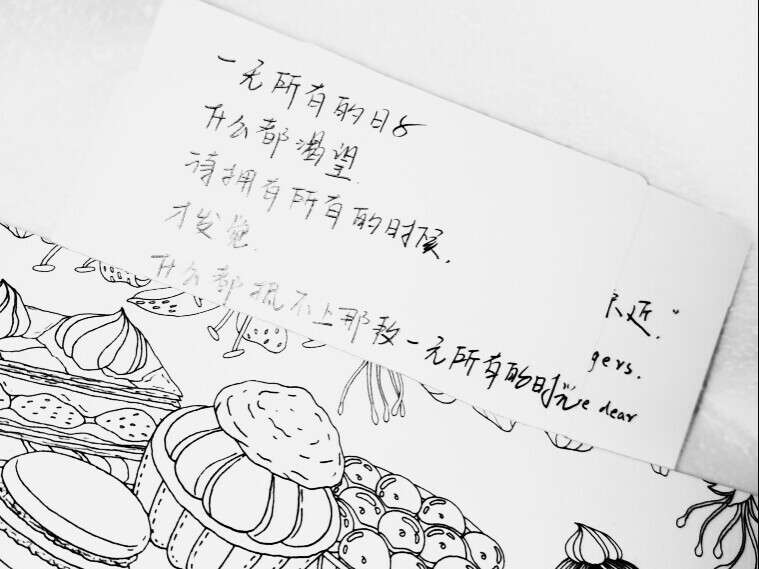 一无所有的日子
什么都渴望.
待拥有所有的时候,
才发觉.
什么都抵不上那段一无所有的时光
近."
gers.
e dear